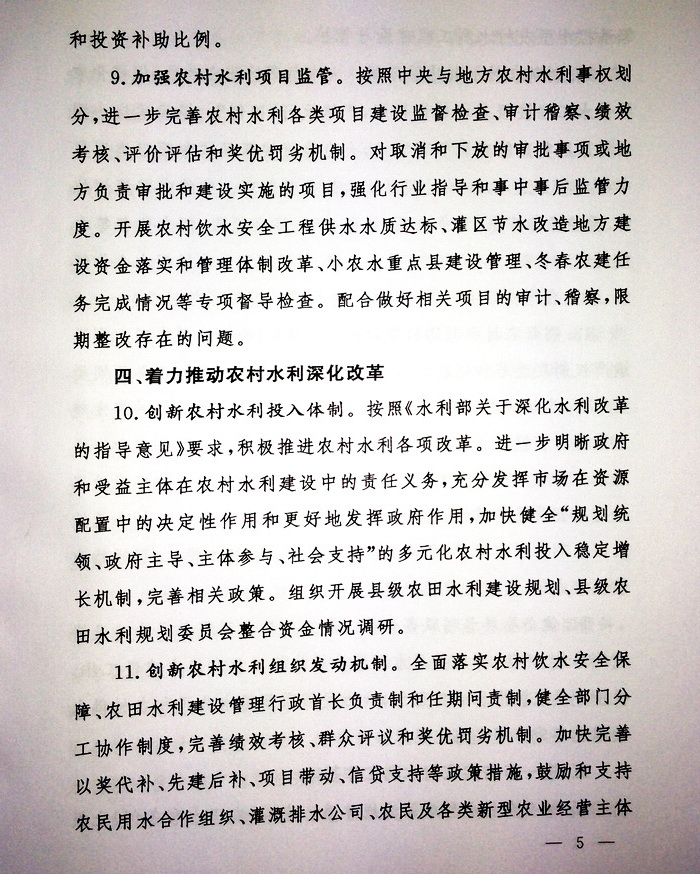 和投资补助比例。
9. 加强农村水利项目监管。按照中央与地方农村水利事权划
分,进一步完善农村水利各类项目建设监督检查、审计稽察、绩效
考核、评价评估和奖优罚劣机制。对取消和下放的审批事项或地
方负责审批和建设实施的项目,强化行业指导和事中事后监管力
度。开展农村饮水安全工程供水水质达标、灌区节水改造地方建
设资金落实和管理体制改革、小农水重点县建设管理、冬春农建任
务完成情况等专项督导检查。配合做好相关项目的审计、稽察,限
期整改存在的问题。
四、着力推动农村水利深化改革
10. 创新农村水利投入体制。按照《水利部关于深化水利改革
的指导意见》要求,积极推进农村水利各项改革。进一步明晰政府
和受益主体在农村水利建设中的责任义务,充分发挥市场在资源
配置中的决定性作用和更好地发挥政府作用,加快健全“规划统
领、政府主导、主体参与、社会支持”的多元化农村水利投入稳定增
长机制,完善相关政策。组织开展县级农田水利建设规划、县级农
田水利规划委员会整合资金情况调研。
11. 创新农村水利组织发动机制。全面落实农村饮水安全保
障、农田水利建设管理行政首长负责制和任期问责制,健全部门分
工协作制度,完善绩效考核、群众评议和奖优罚劣机制。加快完善
以奖代补、先建后补、项目带动、信贷支持等政策措施,鼓励和支持
农民用水合作组织、灌溉排水公司、农民及各类新型农业经营主体
— 5 —